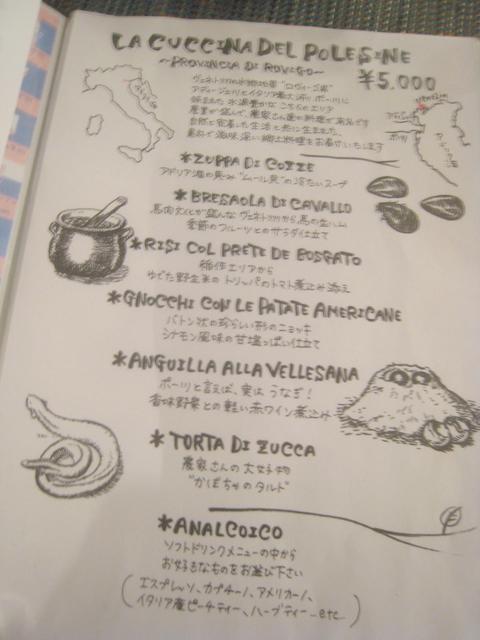 LA CUCCINA DEL POLESINE
~PROVINCIA DI ROVIGO~
¥5,000
ヴェネト州の水郷地帯 "ロヴィーゴ県"
アディージェ川とイタリア最大河川 ポー川に
挟まれた 水源豊かな こちらのエリア
農業が盛んで、農家さん達の料理が有名です
自然と密着した生活と共に生まれた、
素朴で滋味深い郷土料理をお届けいたします
*ZUPPA DI COZZE
アドリア海の恵み "ムール貝"の冷たいスープ
*BRESAOLA DI CAVALLO
馬肉文化が盛んな ヴェネト州から 馬の生ハム
季節のフルーツとのサラダ仕立て
*RISI COL PRETE DE BOSGATO
稲作エリアから
ゆでた野生米の トリッパのトマト煮込み添え
*GNOCCHI CON LE PATATE AMERICANE
バトン状の珍らしい形のニョッキ
シナモン風味の甘塩っぱい仕立て
*ANGUILLA ALLA VELLESANA
ポー川と言えば、実は うなぎ!
香味野菜との軽い赤ワイン煮込み
*TORTA DI ZUCCA
農家さんの大好物
"かぼちゃのタルト"
*ANALCOICO
ソフトドリンクメニューの中から
お好きなものをお選び下さい
(エスプレッソ、カプチーノ、アメリカーノ、
イタリア産ピーチティー、ハーブティー…etc)